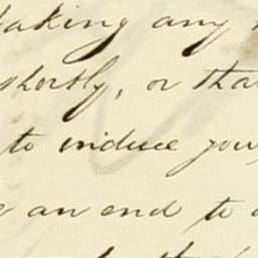 taking any
shortly, or that
to induce you,
an end to